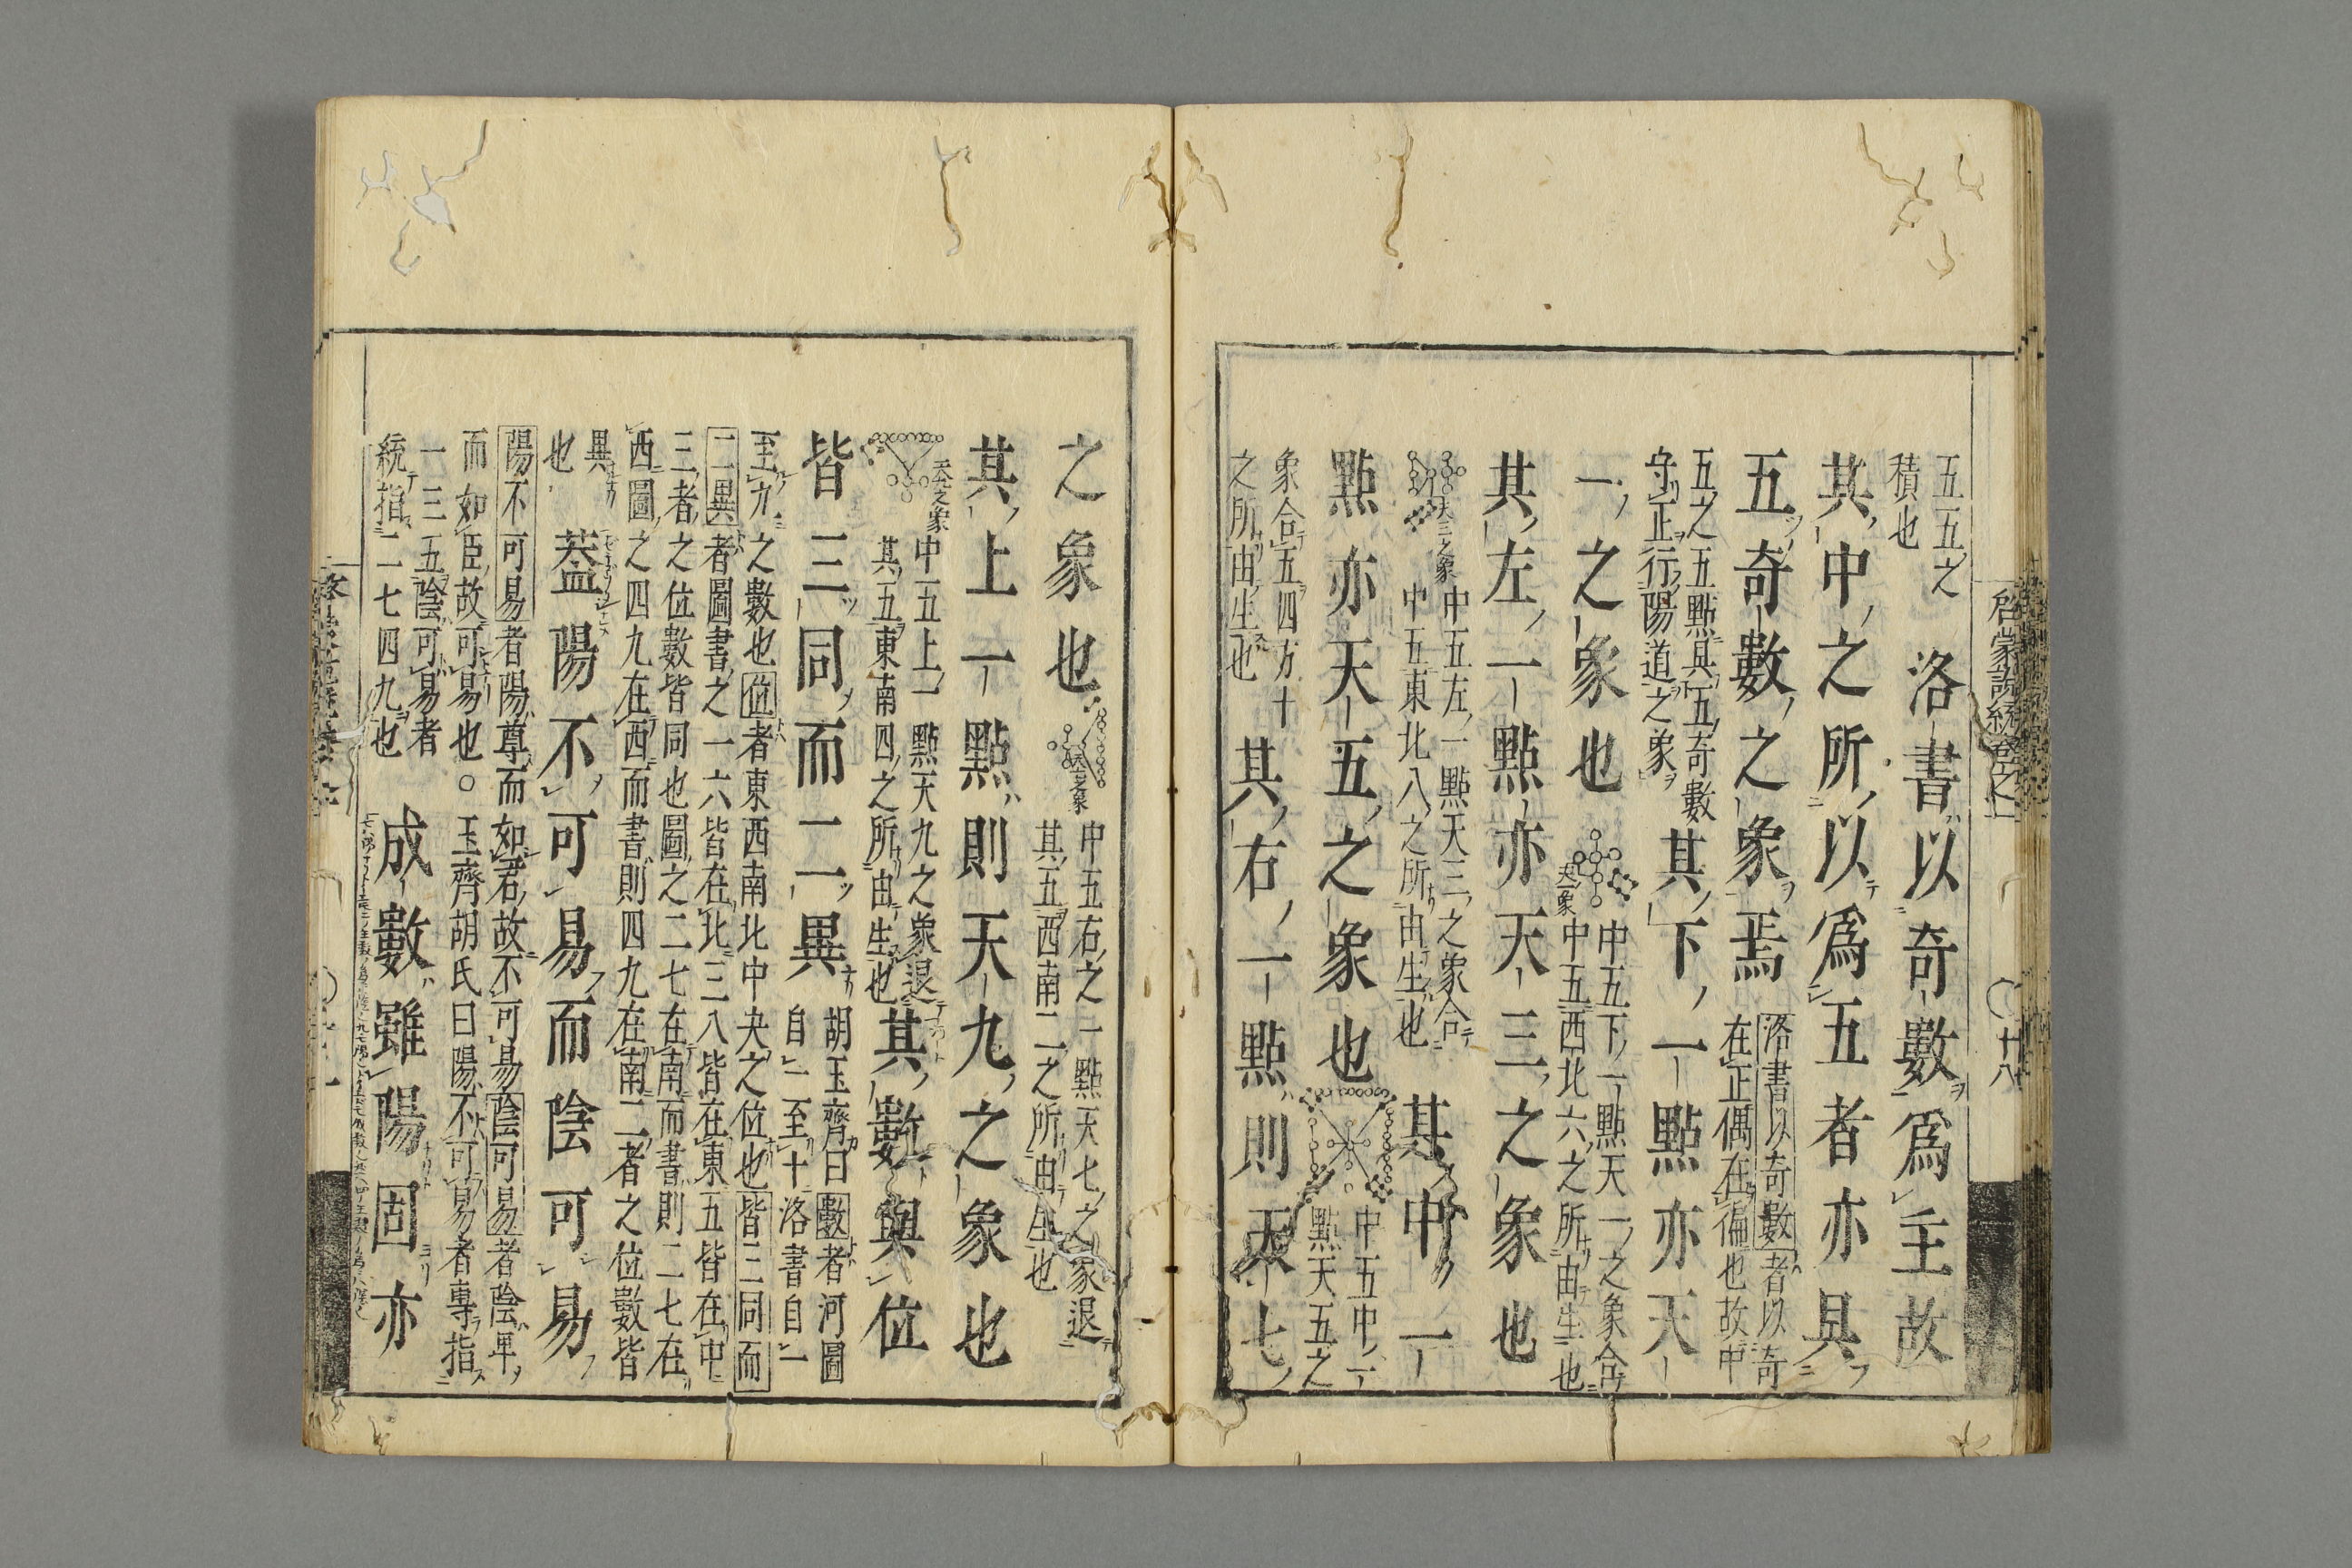 啓蒙説統卷之一 〇廿八
五五之
積也
洛書以奇數爲主故
其中之所以爲五者亦具
五奇數之象焉
洛書以奇數者以奇
在正偶在偏也故中
五之五點具五奇數
守正行陽道之象
其下一點亦天
一之象也
天一象
中五下一點天一之象合
中五西北六之所由生也
其左一點亦天三之象也
天三之象
中五左一點天三之象合
中五東北八之所由生也
其中一
點亦天五之象也
中五中一
點天五之
象合五四方十
之所由生也
其右一點則天七
之象也
中五右之一點天七之象退
其五西南二之所由生也
其上一點則天九之象也
天九之象
中五上一點天九之象退
其五東南四之所由生也
其數與位
皆三同而二異
胡玉齊曰數者河圖
自一至十洛書自一
至九之數也位者東西南北中央之位也皆三同而
二異者圖書之一六皆在北三八皆在東五皆在中
三者之位數皆同也圖之二七在南而書則二七在
西圖之四九在西而書則四九在南二者之位數皆
異
也
葢陽不可易而陰可易
陽不可易者陽尊而如君故不可易陰可易者陰卑
而如臣故可易也〇玉齊胡氏曰陽不可易者專指
一三五陰可易者
統指二七四九也
成數雖陽固亦